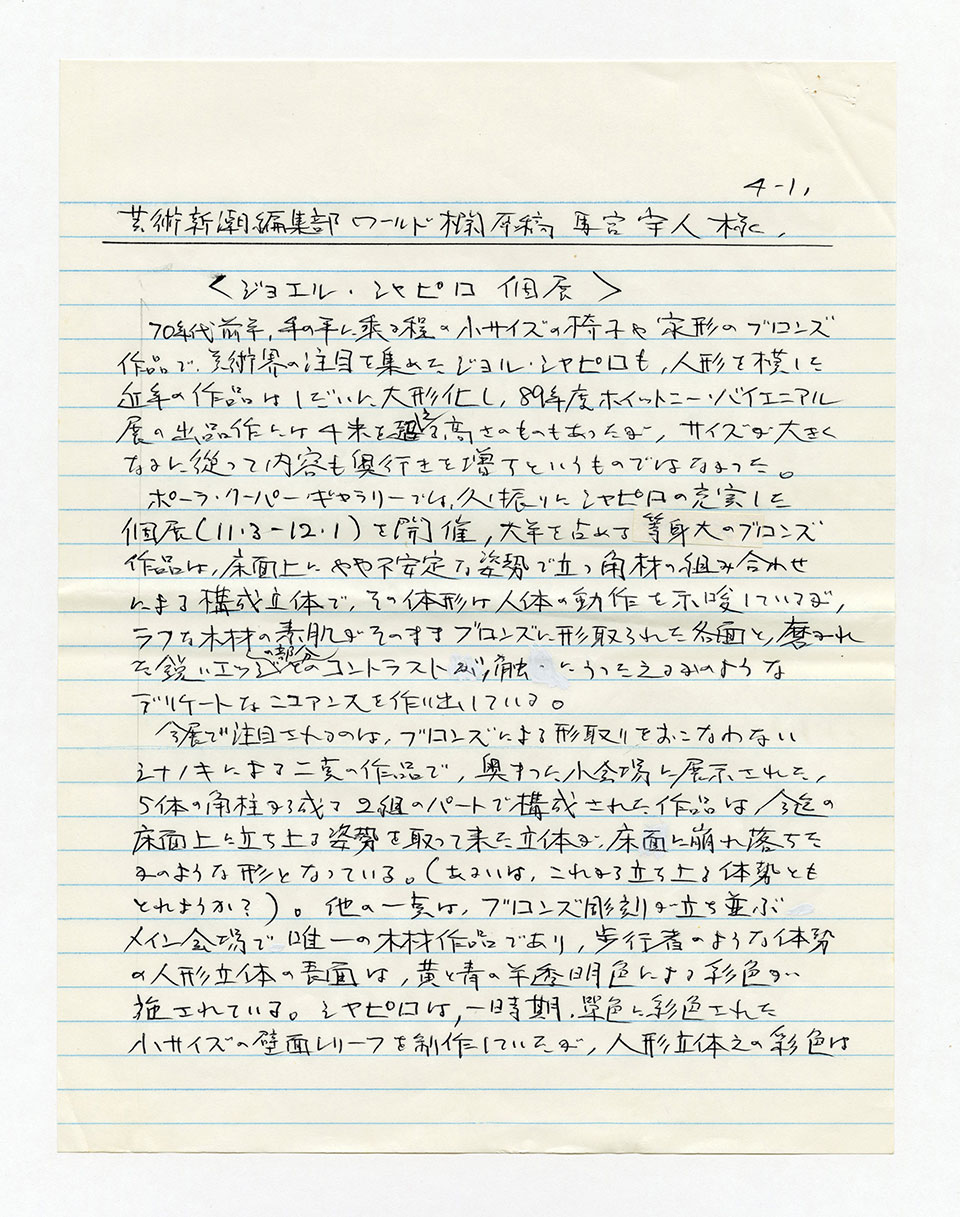 4-1,
芸術新潮編集部 ワールド欄原稿 馬宮宇人 様,
〈ジョエル・シャピロ 個展〉
70年代前半,手の平に乗る程の小サイズの椅子や家形のブロンズ
作品で,美術界の注目を集めたジョル・シャピロも,人形を模した
近年の作品はしだいに大形化し,89年度ホイットニー・バイエニアル
展の出品作には4米を超える高さのものもあったが,サイズが大きく
なるに従って内容も奥行きを増すというものではなかった。
ポーラ・クーパー・ギャラリーでは,久し振りにシャピロの充実した
個展(11・3-12・1)を開催,大半を占める等身大のブロンズ
作品は,床面上にやや不安定な姿勢で立つ角材の組み合わせ
による構成立体で,その体形は人体の動作を示唆しているが,
ラフな木材の素肌がそのままブロンズに形取られた各面と,磨かれ
た鋭いエッジの部分とのコントラストが,触 にうったえるかのような
デリケートなニュアンスを作り出している。
今展で注目されるのは,ブロンズによる形取りをおこなわない
シナノキによる二点の作品で,奥まった小会場に展示された,
5体の角柱から成る2組のパートで構成された作品は,今迄の
床面上に立ち上る姿勢を取って来た立体が,床面に崩れ落ちた
かのような形となっている。(あるいは,これから立ち上る体勢とも
とれようか?)。他の一点は,ブロンズ彫刻が立ち並ぶ
メイン会場で唯一の木材作品であり,歩行者のような体勢
の人形立体の表面は,黄と青の半透明色による彩色が
施されている。シャピロは,一時期,単色に彩色された
小サイズの壁面レリーフを制作していたが,人形立体えの彩色は